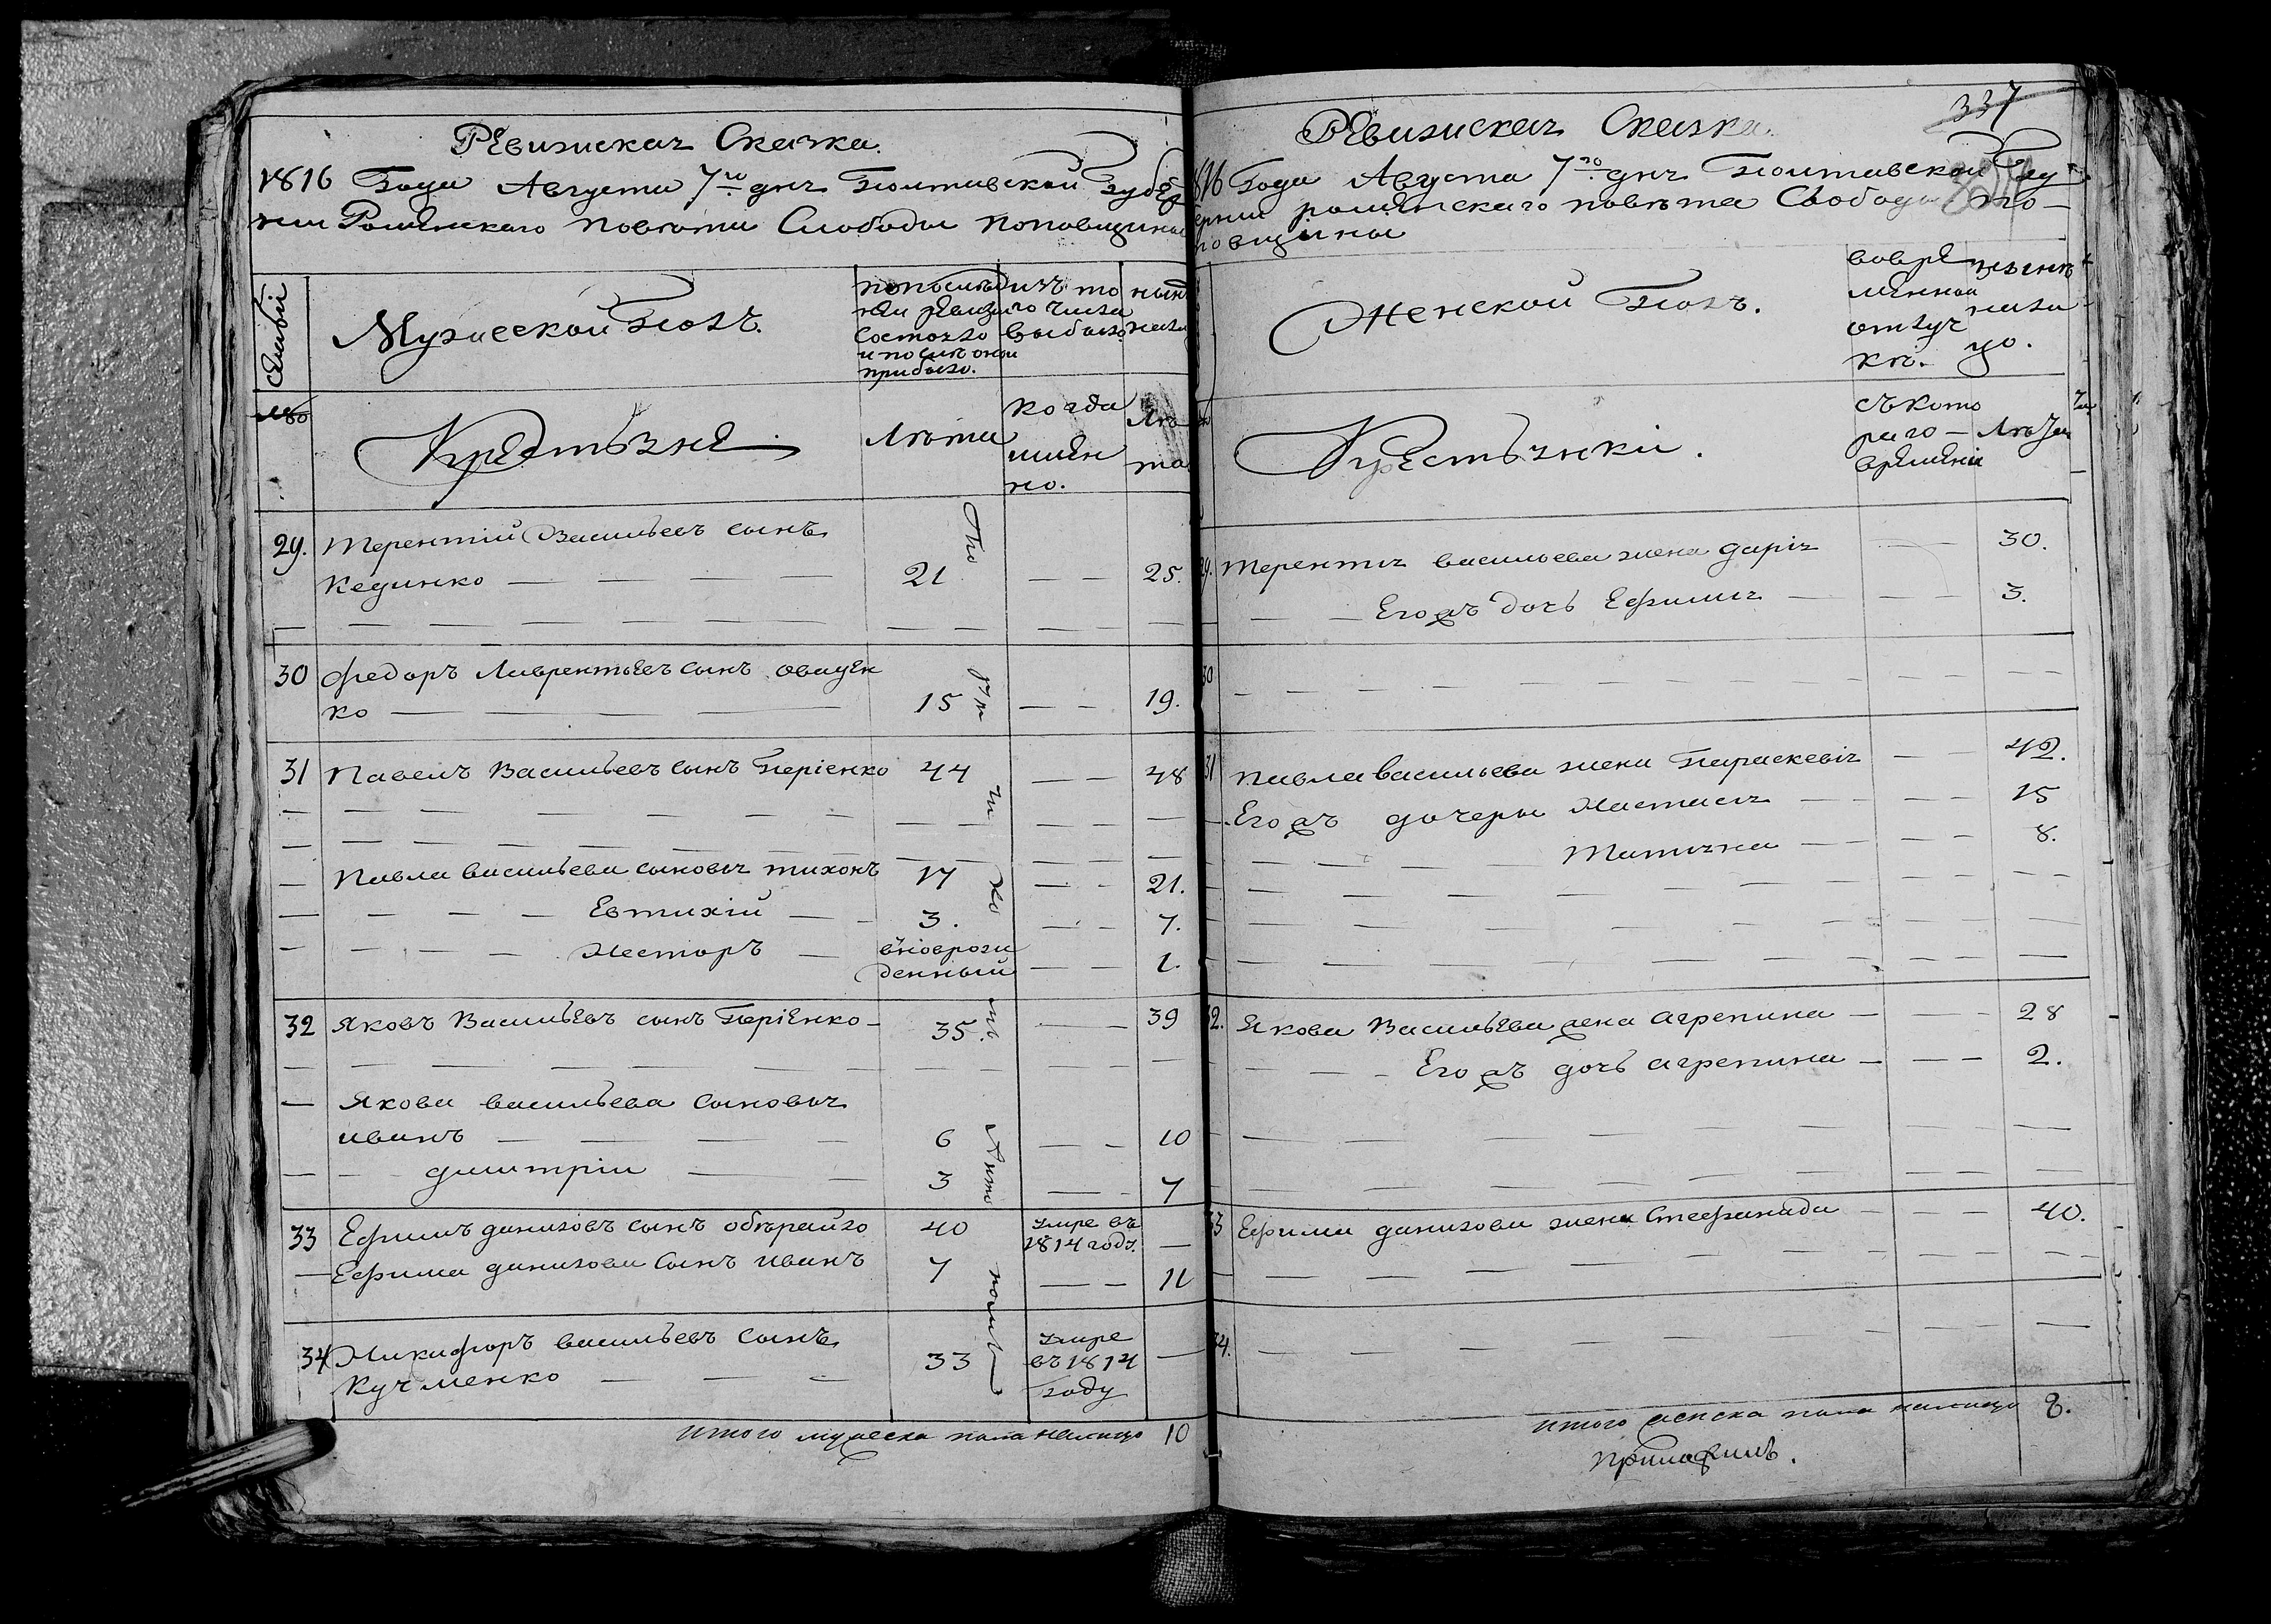 Ревизиская Сказка.
1816 Года Августа 7го дня Полтавской губер
нии Роменского повета Слободы Поповщины
Семьи
Мужеской Полъ.
попослед
ней ревизы
состояло
и после оной
прибыло.
изъ то
го числа
выбыло
ныне
нали
№
Крестьяне
Лета
когда
имен
но.
Ле
та
29. Терентий Васильевъ сынъ
Кединко — — — 21 — — 25.
30 Федоръ Лаврентьевъ сынъ овацен
ко — — — 15 — — 19.
31 Павелъ Васильевъ сынъ Періенко 44 — — 48
— Павла васильева сыновья тихонъ 17 — — 21.
— — — — Евтихій — — 3. — — 7.
— — — — Несторъ — вновьрож
денный — — 1.
32 Яковъ Васильевъ сынъ Періенко — 35. — — 39
— Якова васильева сыновья
иванъ — — — — 6 — — 10
— — димитріи — — 3 — — 7
33 Ефимъ даниловъ сынъ обирайло 40 умре въ
1814 году. —
— Ефима данилова сынъ иванъ 7 — — 11
34 Никифоръ васильевъ сынъ
Кучменко — — — 33 умре
въ 1814
году —
итого мужеска пола налицо 10
337
Ревизиская Сказка.
1816 Года Августа 7го дня Полтавской Гу
бернии роменскаго повета Слободы по-
повщины
Женской Полъ.
вовре
менной
отлуч
ке.
ныне
нали
цо.
Крестьянки.
съкото
раго —
времени
Лета
29. Терентия васильева жена дарія — — 30.
— — Егожъ дочь Ефимия — — — 3.
30 — — — —
31 Павла васильева жена Параскевія — — 42.
— Егожъ дочеры Настасия — — — 15
— — — — Татияна — — — 8.
32. Якова Васильева жена агрепина — — — 28
— — — Егожъ дочь агрепина — — — 2.
33 Ефима данилова жена Стефанида — — — 40.
34. — — — —
итого женска пола налицо 8.